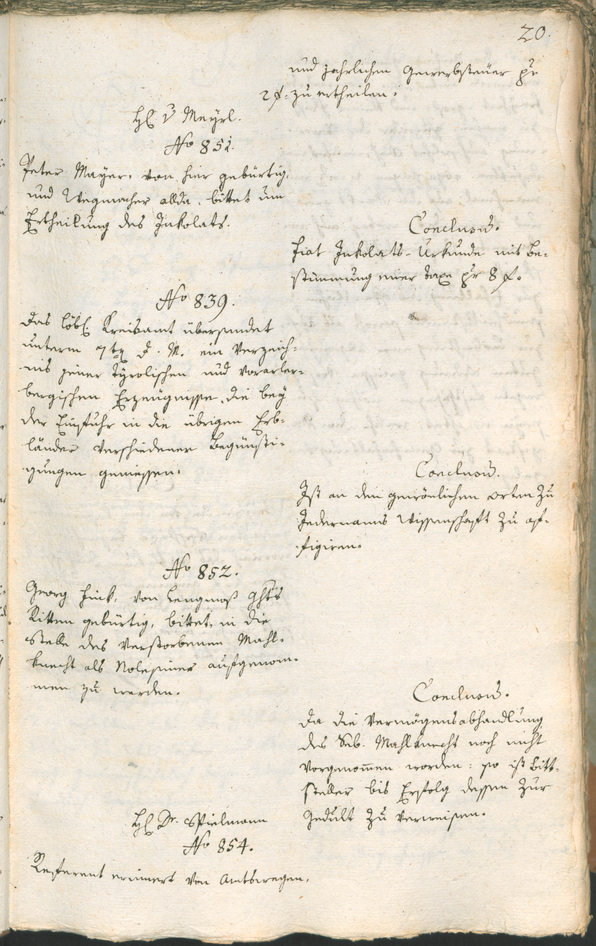 20.
und jährlichen Gewerbsteuer pr
2 f. zu ertheilen.
H. v Mayrl.
No 851.
Peter Mayer, von hier gebürtig,
und Wegmacher allda, bittet um
Ertheilung des Inkolats.
Conclusum.
Fiat Inkolats-Urkunde mit Be-
stimmung einer Taxe pr 8 f.
No 839.
Das löbl. Kreisamt übersendet
unterm 7ten d. M. ein Verzeich-
nis jener tyrolischen und vorarlber-
bergischen Erzeugnisse, die bey
der Einfuhr in die übrigen Erb-
länder verschiedener Begünsti-
gungen geniessen.
Conclusum.
Ist an den gewöhnlichen Orten zu
Jedermanns Wissenschaft zu af-
figiren.
No 852.
Georg Fink, von Lengmoß Ghts
Ritten gebürtig, bittet, in die
Stelle des verstorbenen Mahl-
knecht als aufgenom-
men zu werden.
Conclusum.
Da die Vermögensabhandlung
des Seb. Mahlknecht noch nicht
vorgenommen worden: so ist Bitt-
steller bis Erfolg dessen zur
Gedult zu verweisen.
H. Dr. Spielmann
No 854.
Referent erinnert von Amtswegen,